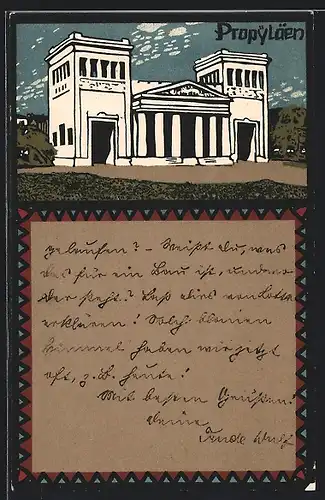 Propyläen
gelaufen? – Weißt du, was
das für ein Bau ist, und wo
der steht? Laß dies von Lotte
erklären! Solch blauen
Himmel haben wir jetzt
oft, z. B. heute!
Mit besten Grüßen!
deine